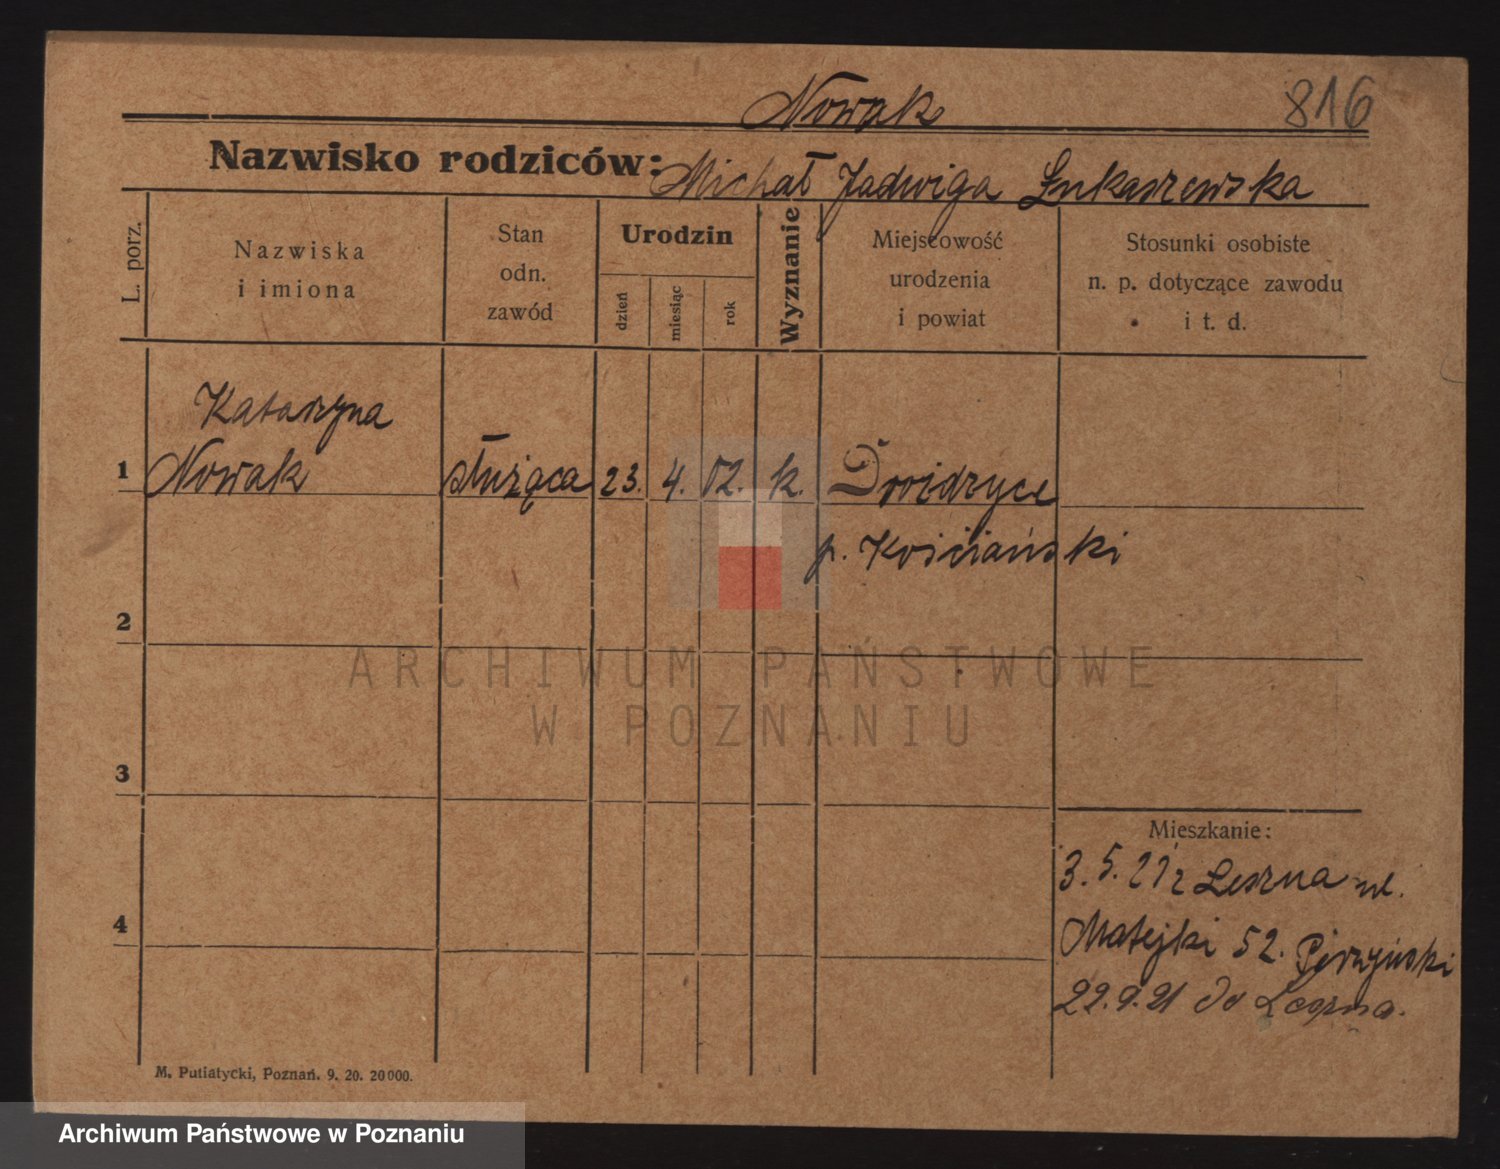 Nowak
816
Nazwisko rodziców: Michał Jadwiga Łukaszewska
L. porz.
Nazwiska
i imiona
Stan
odn.
zawód
Urodzin
dzień
miesiąc
rok
Wyznanie
Miejscowość
urodzenia
i powiat
Stosunki osobiste
n. p. dotyczące zawodu
i t. d.
Katarzyna
1 Nowak służąca 23. 4. 02. k.
p. Kościański
2
3
4
Mieszkanie:
3.5.21 z Leszna ul.
Matejki 52.
22.9.21 do Leszna.
M. Putiatycki, Poznań. 9. 20. 20000.
ARCHIWUM PAŃSTWOWE
W POZNANIU
Archiwum Państwowe w Poznaniu